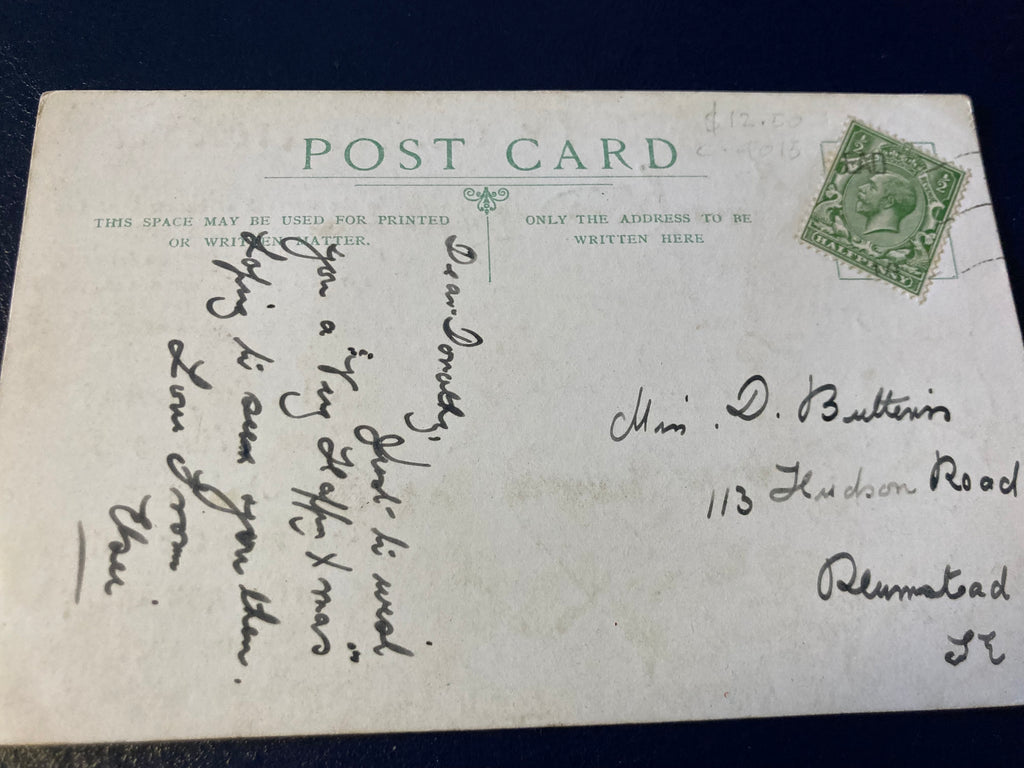 $12.50
c. 1915
POST CARD
THIS SPACE MAY BE USED FOR PRINTED
OR WRITTEN MATTER.
ONLY THE ADDRESS TO BE
WRITTEN HERE
½ ½
HALFPENNY
Dear Dorothy,
Just to wish
you a "Very Happy Xmas"
Hoping to seem you then.
Love from
Miss. D. Butterris
113 Hudson Road
Plumstead
SE